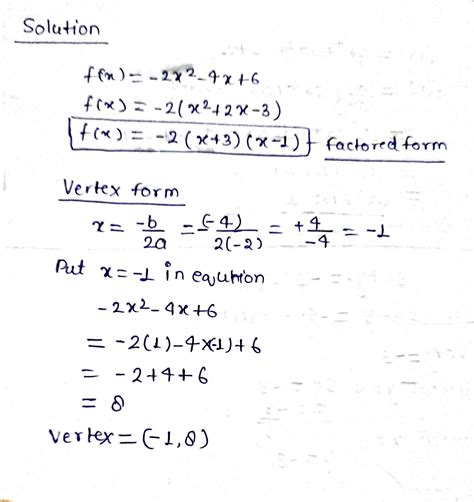 Solution
f(x) = -2x²-4x+6
f(x) = -2(x²+2x-3)
f(x) = -2(x+3)(x-1) } factored form
Vertex form
x = -b/2a = -(-4)/2(-2) = +4/-4 = -1
Put x=-1 in equation
-2x²-4x+6
= -2(1)-4x(-1)+6
= -2+4+6
= 8
Vertex = (-1,8)